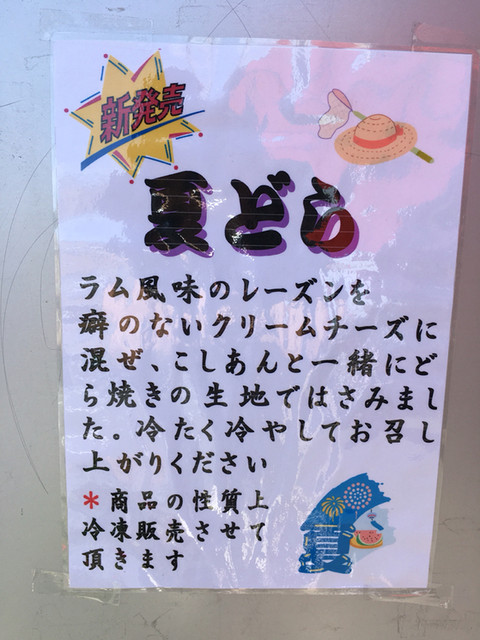 新発売
夏どら
ラム風味のレーズンを
癖のないクリームチーズに
混ぜ、こしあんと一緒にど
ら焼きの生地ではさみまし
た。冷たく冷やしてお召し
上がりください
*商品の性質上
冷凍販売させて
頂きます
夏